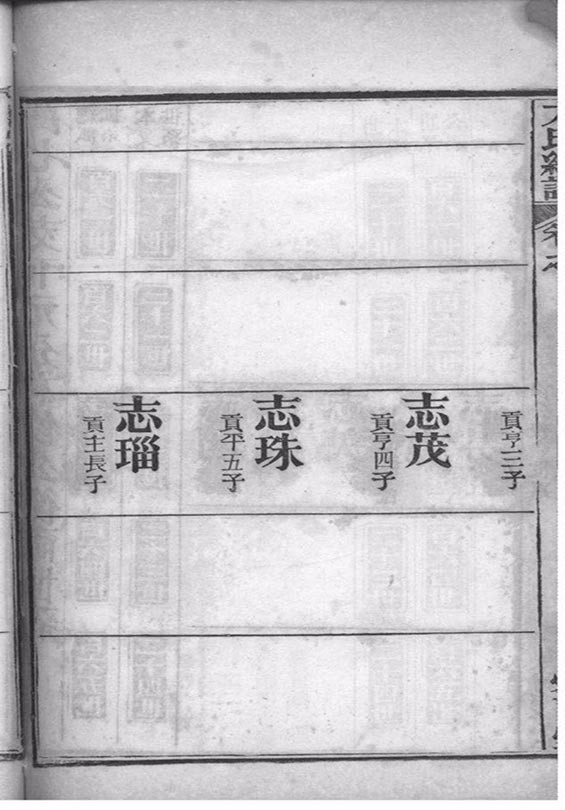 貢亨三子
志茂
貢亨四子
志珠
貢平五子
志瑙
貢主長子